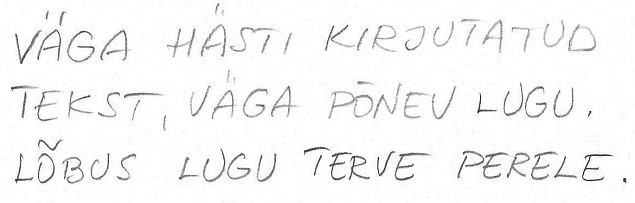 VÄGA HÄSTI KIRJUTATUD
TEKST, VÄGA PÕNEV LUGU.
LÕBUS LUGU TERVE PERELE.